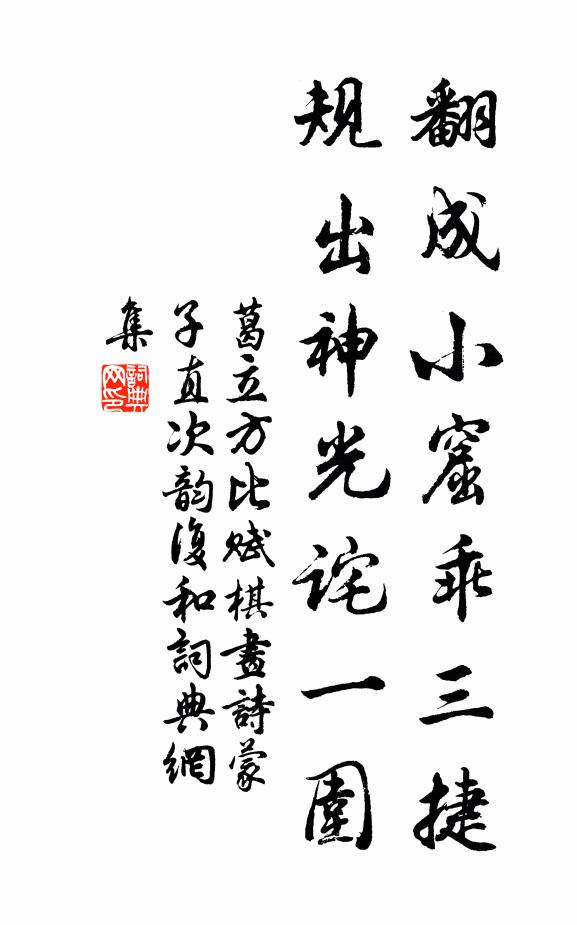 翻成小窟乖三捷
規出神光詫一圍
葛立方比賦棋畫詩蒙
子直次韵復和詞典網
集
詞典
网印